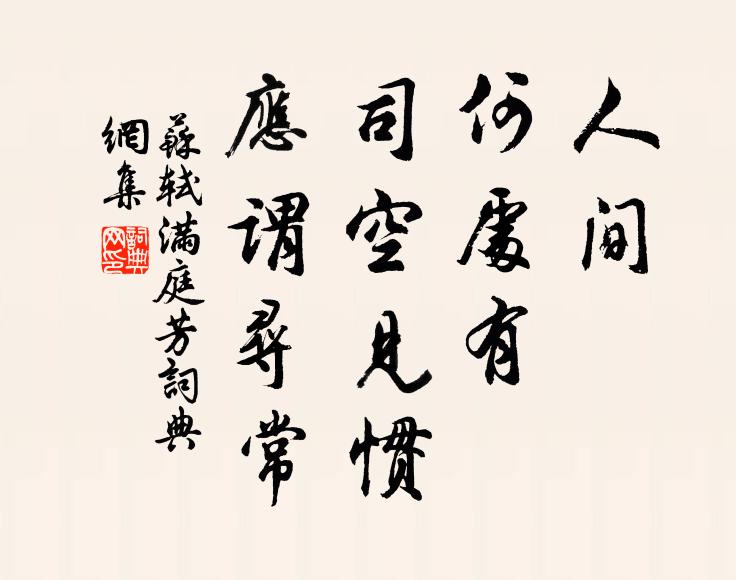 人間
何處有
司空見慣
應謂尋常
蘇軾滿庭芳詞典
網集
詞典
网印